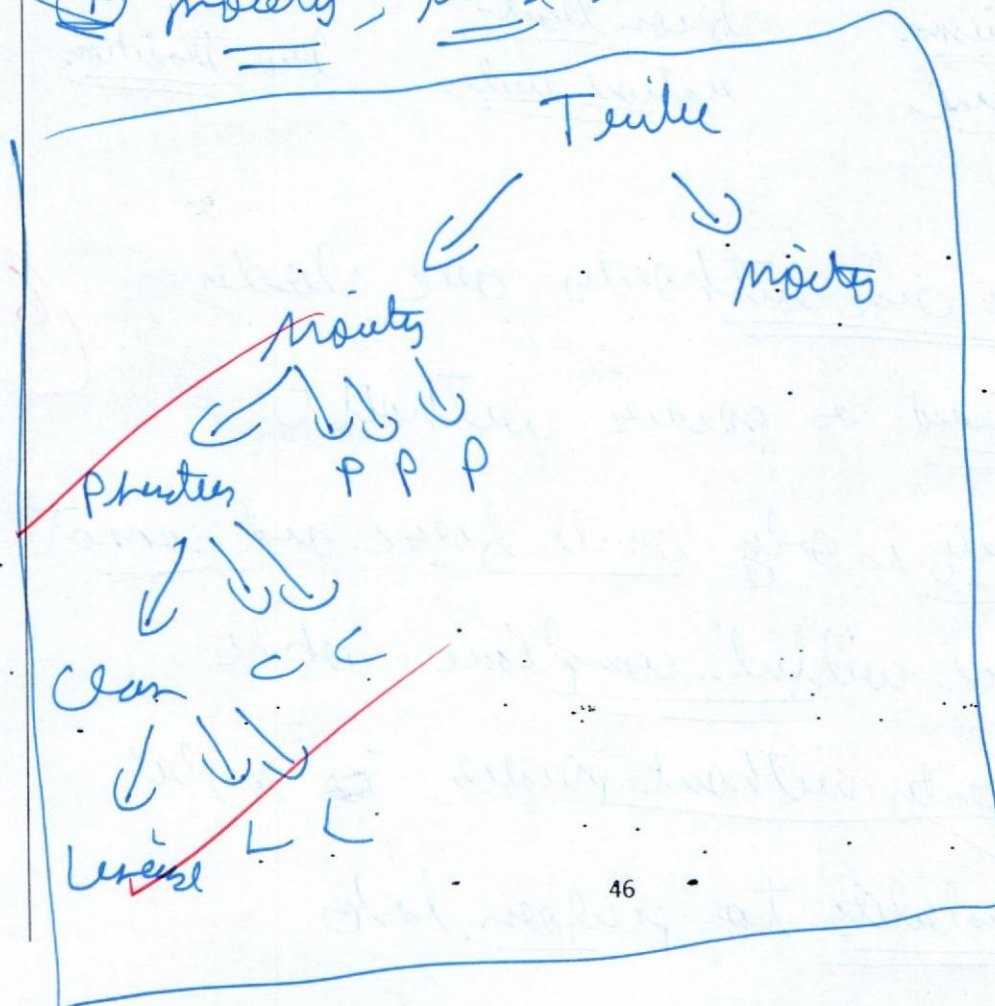 Tribe
Moiety
Moiety
Phratries
P P P
Clan
C C
Lineage
L L
46